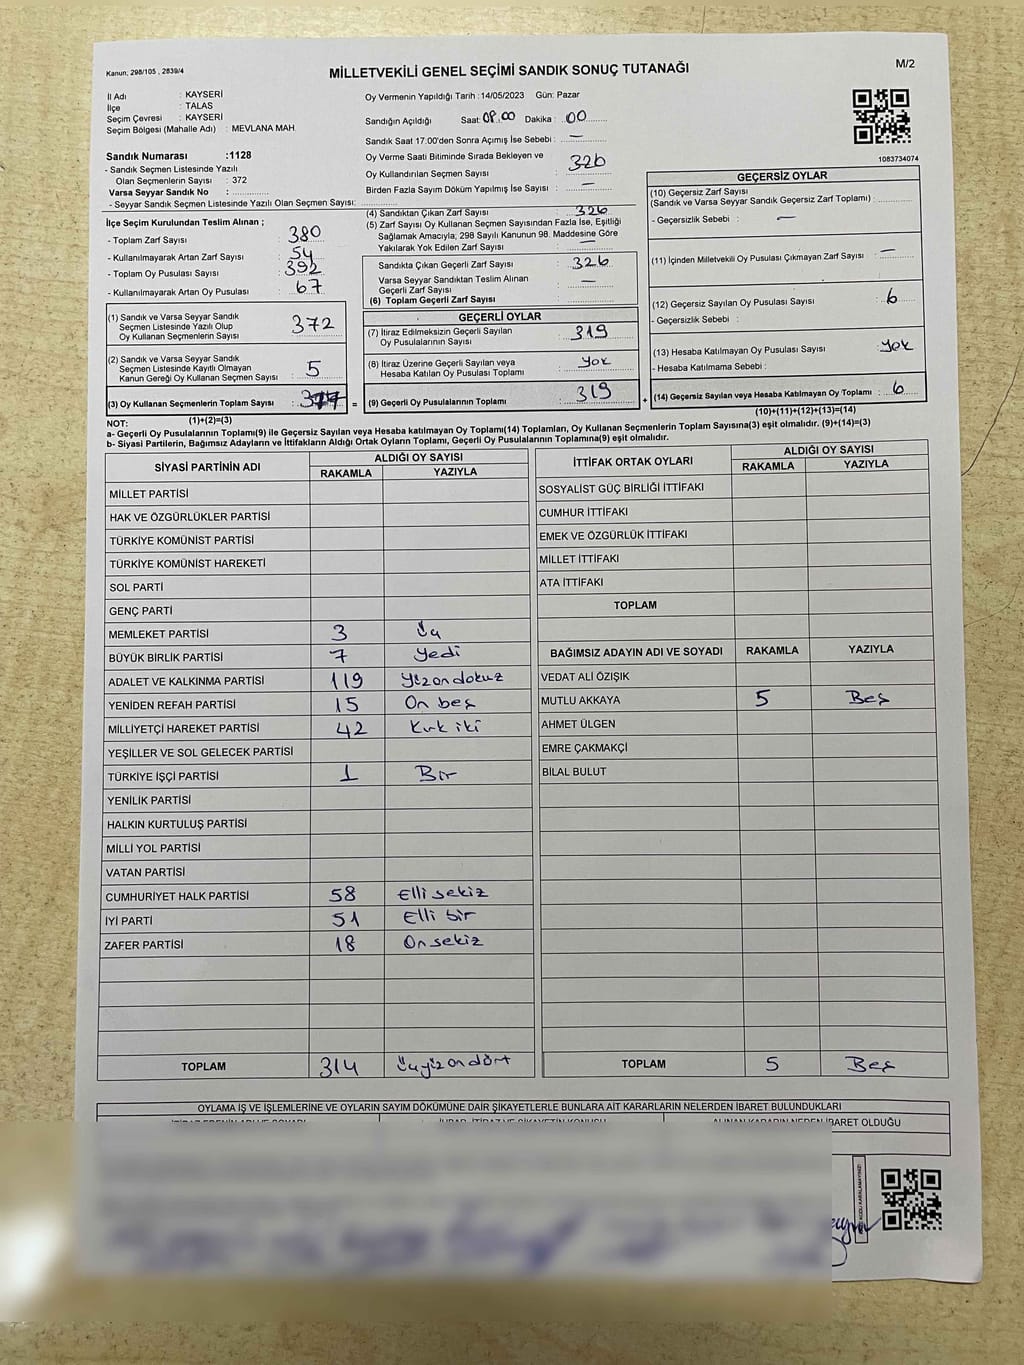 Kanun; 298/105 , 2839/4
MİLLETVEKİLİ GENEL SEÇİMİ SANDIK SONUÇ TUTANAĞI
M/2
İl Adı : KAYSERİ
İlçe : TALAS
Seçim Çevresi : KAYSERİ
Seçim Bölgesi (Mahalle Adı) : MEVLANA MAH.
Sandık Numarası :1128
- Sandık Seçmen Listesinde Yazılı
Olan Seçmenlerin Sayısı : 372
Varsa Seyyar Sandık No :
- Seyyar Sandık Seçmen Listesinde Yazılı Olan Seçmen Sayısı:
Oy Vermenin Yapıldığı Tarih : 14/05/2023 Gün: Pazar
Sandığın Açıldığı Saat: 08.00 Dakika : 00
Sandık Saat 17:00'den Sonra Açımış İse Sebebi : —
Oy Verme Saati Bitiminde Sırada Bekleyen ve
Oy Kullandırılan Seçmen Sayısı : 326
Birden Fazla Sayım Döküm Yapılmış İse Sayısı : —
1083734074
İlçe Seçim Kurulundan Teslim Alınan ;
- Toplam Zarf Sayısı : 380
- Kullanılmayarak Artan Zarf Sayısı : 54
- Toplam Oy Pusulası Sayısı : 392
- Kullanılmayarak Artan Oy Pusulası : 67
(1) Sandık ve Varsa Seyyar Sandık
Seçmen Listesinde Yazılı Olup
Oy Kullanan Seçmenlerin Sayısı : 372
(2) Sandık ve Varsa Seyyar Sandık
Seçmen Listesinde Kayıtlı Olmayan
Kanun Gereği Oy Kullanan Seçmen Sayısı : 5
(3) Oy Kullanan Seçmenlerin Toplam Sayısı : =
(1)+(2)=(3)
(4) Sandıktan Çıkan Zarf Sayısı : 326
(5) Zarf Sayısı Oy Kullanan Seçmen Sayısından Fazla İse, Eşitliği
Sağlamak Amacıyla, 298 Sayılı Kanunun 98. Maddesine Göre
Yakılarak Yok Edilen Zarf Sayısı : —
Sandıkta Çıkan Geçerli Zarf Sayısı : 326
Varsa Seyyar Sandıktan Teslim Alınan
Geçerli Zarf Sayısı : —
(6) Toplam Geçerli Zarf Sayısı :
GEÇERLİ OYLAR
(7) İtiraz Edilmeksizin Geçerli Sayılan
Oy Pusulalarının Sayısı : 319
(8) İtiraz Üzerine Geçerli Sayılan veya
Hesaba Katılan Oy Pusulası Toplamı : Yok
(9) Geçerli Oy Pusulalarının Toplamı : 319 +
GEÇERSİZ OYLAR
(10) Geçersiz Zarf Sayısı
(Sandık ve Varsa Seyyar Sandık Geçersiz Zarf Toplamı) :
- Geçersizlik Sebebi : —
(11) İçinden Milletvekili Oy Pusulası Çıkmayan Zarf Sayısı : —
(12) Geçersiz Sayılan Oy Pusulası Sayısı : 6
- Geçersizlik Sebebi :
(13) Hesaba Katılmayan Oy Pusulası Sayısı : Yok
- Hesaba Katılmama Sebebi :
(14) Geçersiz Sayılan veya Hesaba Katılmayan Oy Toplamı : 6
(10)+(11)+(12)+(13)=(14)
NOT:
a- Geçerli Oy Pusulalarının Toplamı(9) ile Geçersiz Sayılan veya Hesaba katılmayan Oy Toplamı(14) Toplamları, Oy Kullanan Seçmenlerin Toplam Sayısına(3) eşit olmalıdır. (9)+(14)=(3)
b- Siyasi Partilerin, Bağımsız Adayların ve İttifakların Aldığı Ortak Oyların Toplamı, Geçerli Oy Pusulalarının Toplamına(9) eşit olmalıdır.
SİYASİ PARTİNİN ADI ALDIĞI OY SAYISI
RAKAMLA YAZIYLA
MİLLET PARTİSİ
HAK VE ÖZGÜRLÜKLER PARTİSİ
TÜRKİYE KOMÜNİST PARTİSİ
TÜRKİYE KOMÜNİST HAREKETİ
SOL PARTİ
GENÇ PARTİ
MEMLEKET PARTİSİ 3 Üç
BÜYÜK BİRLİK PARTİSİ 7 Yedi
ADALET VE KALKINMA PARTİSİ 119 Yüzondokuz
YENİDEN REFAH PARTİSİ 15 On beş
MİLLİYETÇİ HAREKET PARTİSİ 42 Kırk iki
YEŞİLLER VE SOL GELECEK PARTİSİ
TÜRKİYE İŞÇİ PARTİSİ 1 Bir
YENİLİK PARTİSİ
HALKIN KURTULUŞ PARTİSİ
MİLLİ YOL PARTİSİ
VATAN PARTİSİ
CUMHURİYET HALK PARTİSİ 58 Elli sekiz
İYİ PARTİ 51 Elli bir
ZAFER PARTİSİ 18 On sekiz
TOPLAM 314 Üçyüz on dört
İTTİFAK ORTAK OYLARI ALDIĞI OY SAYISI
RAKAMLA YAZIYLA
SOSYALİST GÜÇ BİRLİĞİ İTTİFAKI
CUMHUR İTTİFAKI
EMEK VE ÖZGÜRLÜK İTTİFAKI
MİLLET İTTİFAKI
ATA İTTİFAKI
TOPLAM
BAĞIMSIZ ADAYIN ADI VE SOYADI RAKAMLA YAZIYLA
VEDAT ALİ ÖZIŞIK
MUTLU AKKAYA 5 Beş
AHMET ÜLGEN
EMRE ÇAKMAKÇİ
BİLAL BULUT
TOPLAM 5 Beş
OYLAMA İŞ VE İŞLEMLERİNE VE OYLARIN SAYIM DÖKÜMÜNE DAİR ŞİKAYETLERLE BUNLARA AİT KARARLARIN NELERDEN İBARET BULUNDUKLARI
ALINAN KARARIN NEDEN İBARET OLDUĞU